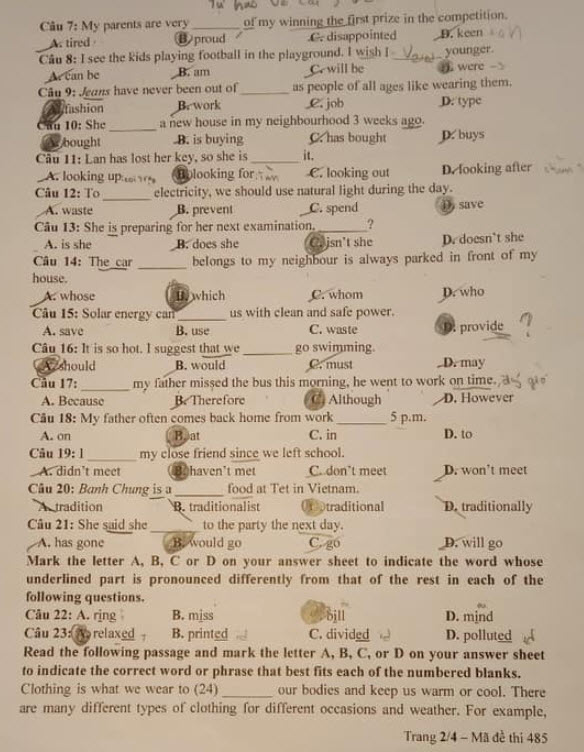 Câu 7: My parents are very ________ of my winning the first prize in the competition.
A. tired B. proud C. disappointed D. keen
Câu 8: I see the kids playing football in the playground. I wish I ________ younger.
A. can be B. am C. will be D. were
Câu 9: Jeans have never been out of ________ as people of all ages like wearing them.
A. fashion B. work C. job D. type
Câu 10: She ________ a new house in my neighbourhood 3 weeks ago.
A. bought B. is buying C. has bought D. buys
Câu 11: Lan has lost her key, so she is ________ it.
A. looking up B. looking for C. looking out D. looking after
Câu 12: To ________ electricity, we should use natural light during the day.
A. waste B. prevent C. spend D. save
Câu 13: She is preparing for her next examination, ________?
A. is she B. does she C. isn't she D. doesn't she
Câu 14: The car ________ belongs to my neighbour is always parked in front of my
house.
A. whose B. which C. whom D. who
Câu 15: Solar energy can ________ us with clean and safe power.
A. save B. use C. waste D. provide ?
Câu 16: It is so hot. I suggest that we ________ go swimming.
A. should B. would C. must D. may
Câu 17: ________ my father missed the bus this morning, he went to work on time.
A. Because B. Therefore C. Although D. However
Câu 18: My father often comes back home from work ________ 5 p.m.
A. on B. at C. in D. to
Câu 19: I ________ my close friend since we left school.
A. didn't meet B. haven't met C. don't meet D. won't meet
Câu 20: Banh Chung is a ________ food at Tet in Vietnam.
A. tradition B. traditionalist C. traditional D. traditionally
Câu 21: She said she ________ to the party the next day.
A. has gone B. would go C. go D. will go
Mark the letter A, B, C or D on your answer sheet to indicate the word whose
underlined part is pronounced differently from that of the rest in each of the
following questions.
Câu 22: A. ring B. miss C. bill D. mind
Câu 23: A. relaxed B. printed C. divided D. polluted
Read the following passage and mark the letter A, B, C, or D on your answer sheet
to indicate the correct word or phrase that best fits each of the numbered blanks.
Clothing is what we wear to (24) ________ our bodies and keep us warm or cool. There
are many different types of clothing for different occasions and weather. For example,
Trang 2/4 – Mã đề thi 485